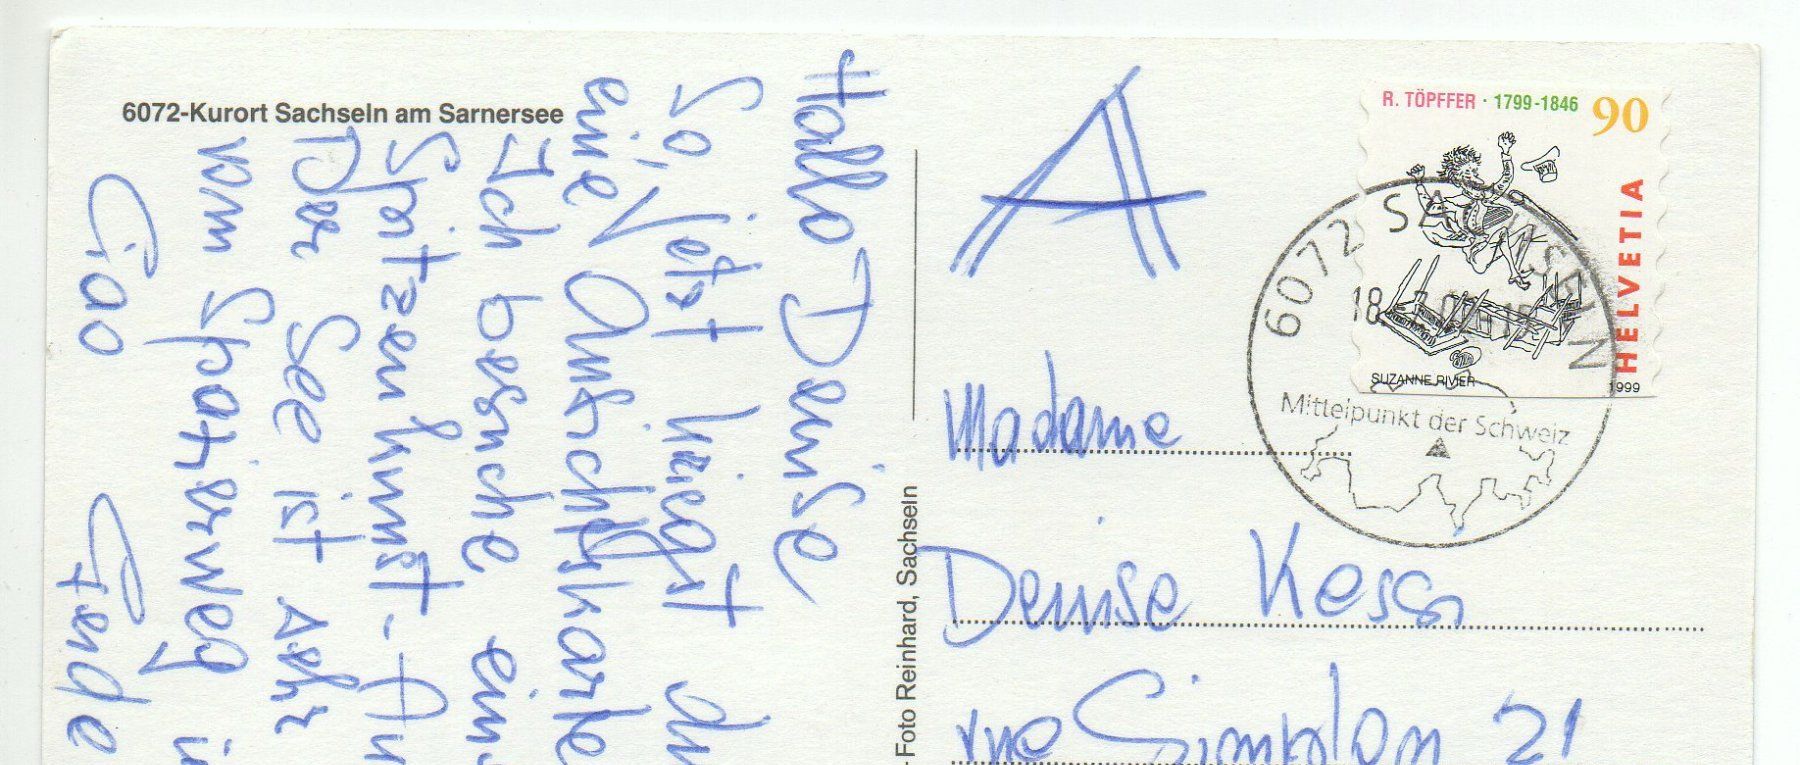 6072-Kurort Sachseln am Sarnersee
Hallo Denise
So, jetzt kriegst du
eine Ansichtskarte
Ich besuche
Spitzenkunst-
Der See ist sehr
vom Spazierweg
Ciao Gerde
Foto Reinhard, Sachseln
A
R. TÖPFFER · 1799-1846 90
HELVETIA
SUZANNE RIVIER
1999
6072 SACHSELN
Mittelpunkt der Schweiz
Madame
Denise Kessi
rue Simplon 21